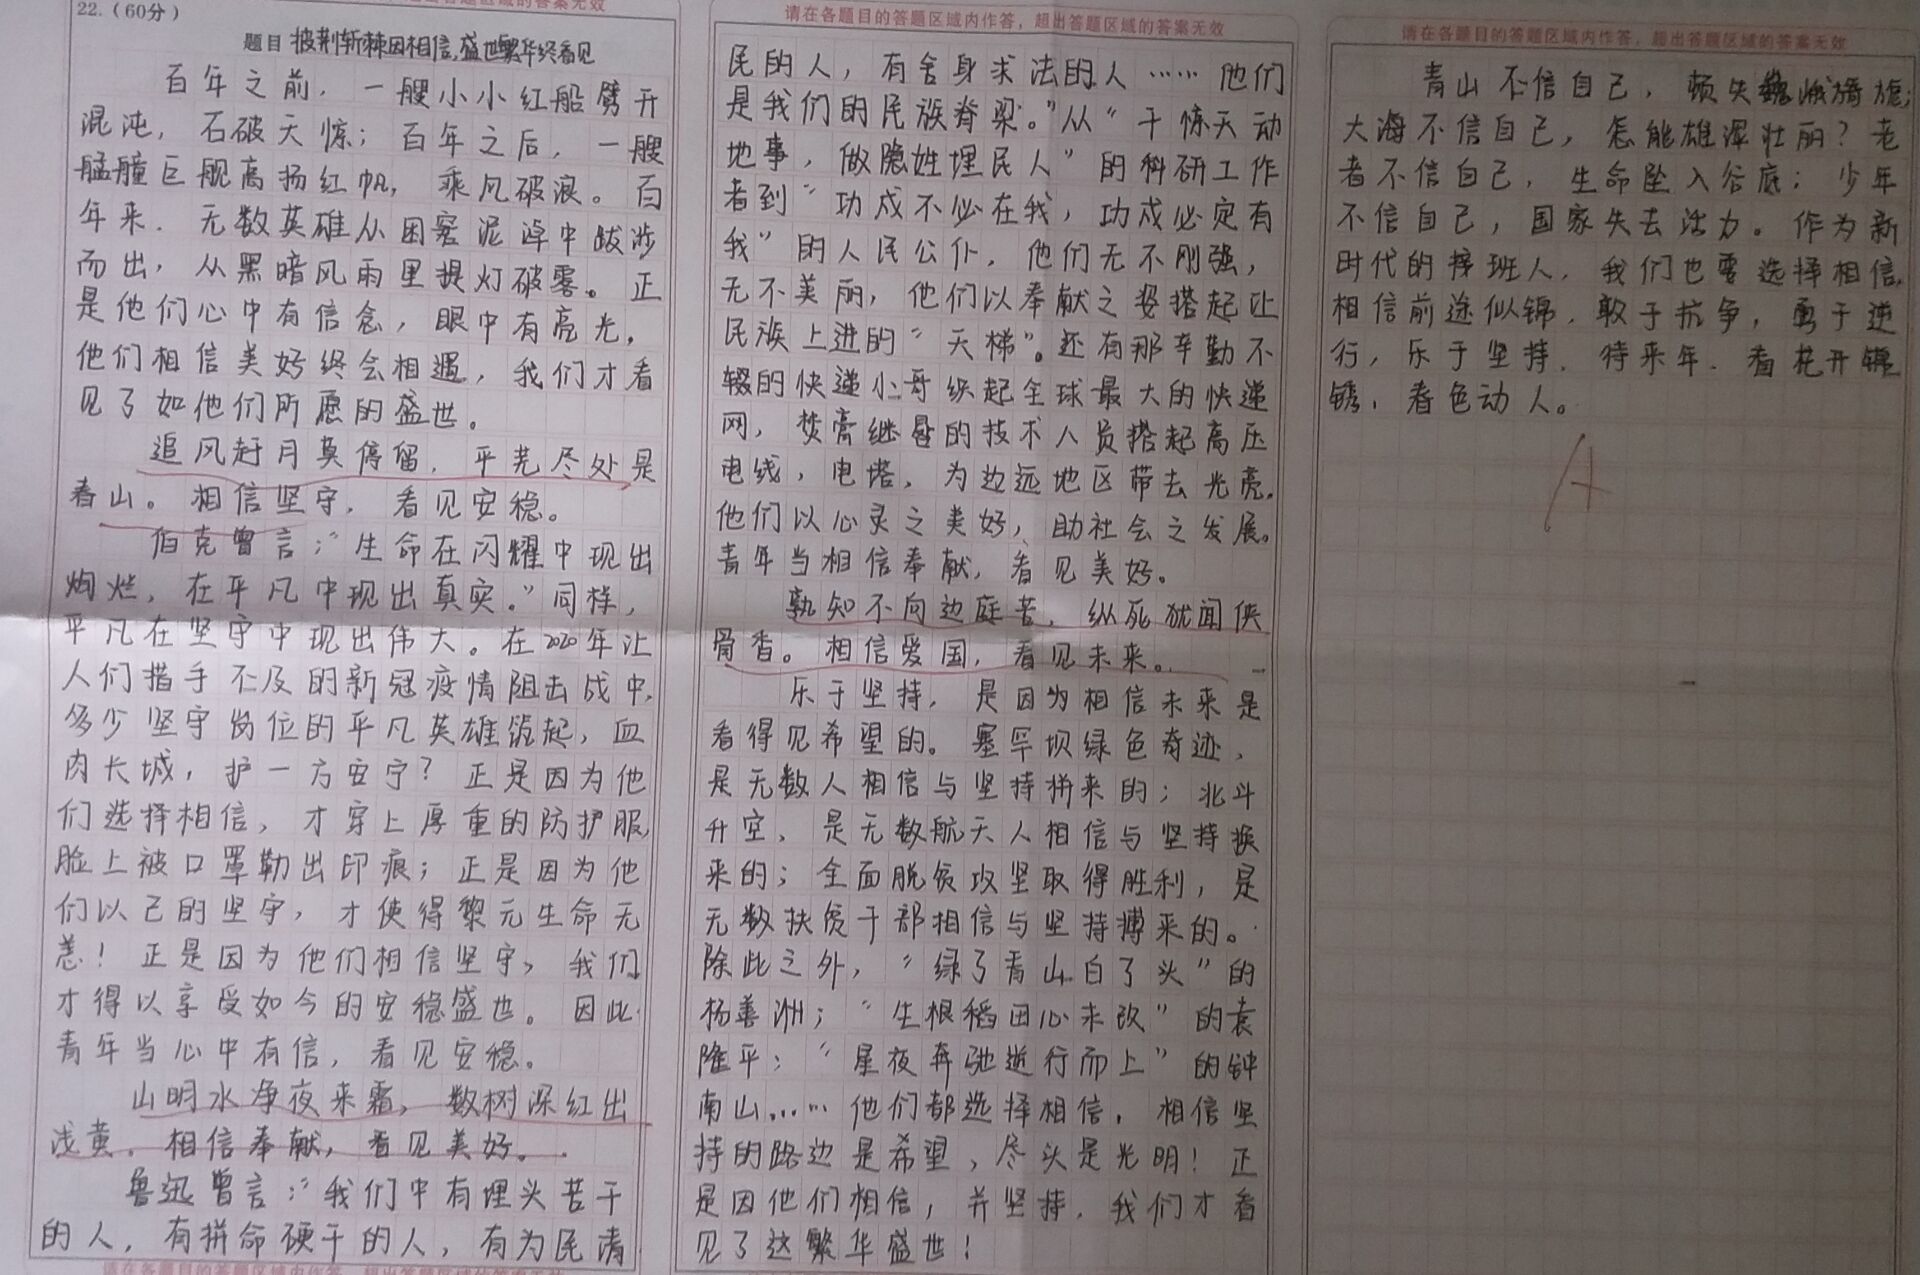 请在各题目的答题区域内作答，超出答题区域的答案无效
22.（60分）
题目 披荆斩棘因相信,盛世繁华终看见
百年之前，一艘小小红船劈开
混沌，石破天惊；百年之后，一艘
艋艟巨舰高扬红帆，乘风破浪。百
年来，无数英雄从困窘泥淖中跋涉
而出，从黑暗风雨里提灯破雾。正
是他们心中有信念，眼中有亮光，
他们相信美好终会相遇，我们才看
见了如他们所愿的盛世。
追风赶月莫停留，平芜尽处是
春山。相信坚守，看见安稳。
伯克曾言：“生命在闪耀中现出
绚烂，在平凡中现出真实。”同样，
平凡在坚守中现出伟大。在2020年让
人们措手不及的新冠疫情阻击战中，
多少坚守岗位的平凡英雄筑起，血
肉长城，护一方安宁？正是因为他
们选择相信，才穿上厚重的防护服，
脸上被口罩勒出印痕；正是因为他
们以己的坚守，才使得黎元生命无
恙！正是因为他们相信坚守，我们
才得以享受如今的安稳盛世。因此，
青年当心中有信，看见安稳。
山明水净夜来霜，数树深红出
浅黄。相信奉献，看见美好。
鲁迅曾言：“我们中有埋头苦干
的人，有拼命硬干的人，有为民请
请在各题目的答题区域内作答，超出答题区域的答案无效
请在各题目的答题区域内作答，超出答题区域的答案无效
民的人，有舍身求法的人……他们
是我们的民族脊梁。”从“干惊天动
地事，做隐姓埋民人”的科研工作
者到“功成不必在我，功成必定有
我”的人民公仆，他们无不刚强，
无不美丽，他们以奉献之姿搭起让
民族上进的“天梯”。还有那辛勤不
辍的快递小哥织起全球最大的快递
网，焚膏继晷的技术人员搭起高压
电线，电塔，为边远地区带去光亮。
他们以心灵之美好，助社会之发展。
青年当相信奉献，看见美好。
孰知不向边庭苦，纵死犹闻侠
骨香。相信爱国，看见未来。
乐于坚持，是因为相信未来是
看得见希望的。塞罕坝绿色奇迹，
是无数人相信与坚持拼来的；北斗
升空，是无数航天人相信与坚持换
来的；全面脱贫攻坚取得胜利，是
无数扶贫干部相信与坚持搏来的。
除此之外，“绿了青山白了头”的
杨善洲；“生根稻田心未改”的袁
隆平；“星夜奔驰逆行而上”的钟
南山……他们都选择相信，相信坚
持的路边是希望，尽头是光明！正
是因他们相信，并坚持，我们才看
见了这繁华盛世！
请在各题目的答题区域内作答，超出答题区域的答案无效
青山不信自己，顿失巍峨旖旎；
大海不信自己，怎能雄浑壮丽？老
者不信自己，生命坠入谷底；少年
不信自己，国家失去活力。作为新
时代的接班人，我们也要选择相信，
相信前途似锦，敢于抗争，勇于逆
行，乐于坚持，待来年，看花开锦
锈，春色动人。
A